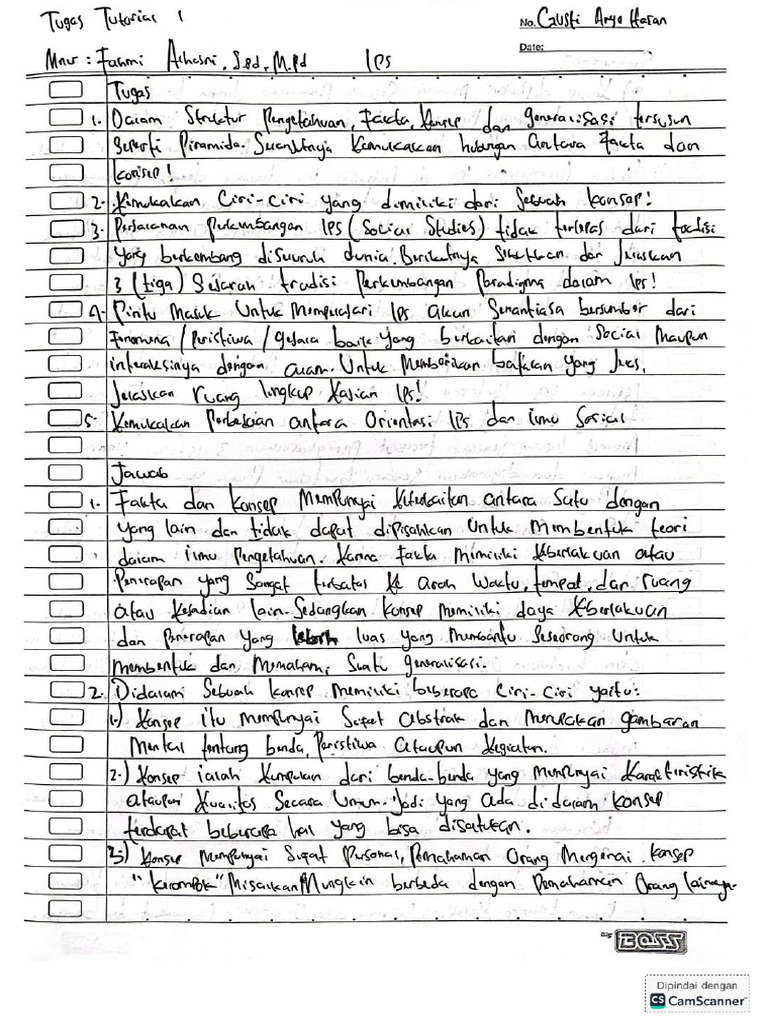 Tugas Tutorial 1
No. Gusti Aryo Hasan
Date:
Mnur : Fahmi Alhasni, S.pd, M.Pd IPS
Tugas
1. Dalam Struktur Pengetahuan, Fakta, Konsep dan generalisasi tersusun
Seperti Piramida. Kemukakan hubungan antara Fakta dan
konsep!
2. Kemukakan Ciri-Ciri yang dimiliki dari Sebuah konsep!
3. Perjalanan perkembangan IPS (Social Studies) tidak terlepas dari tradisi
yang berkembang diseluruh dunia. Berikutnya Sebutkan dan Jelaskan
3 (tiga) Sejarah tradisi Perkembangan Paradigma dalam Ips!
4. Pintu Masuk Untuk Mempelajari IPS akan Senantiasa bersumber dari
Fenomena / Peristiwa / gejala baik yang berkaitan dengan Social Maupun
interaksinya dengan alam. Untuk Memberikan batasan yang Jelas,
Jelaskan ruang lingkup Kajian IPS!
5. Kemukakan Perbedaan antara Orientasi IPS dan ilmu Sosial
Jawab
1. Fakta dan konsep Mempunyai Keterkaitan antara Satu dengan
yang lain dan tidak dapat dipisahkan Untuk Membentuk teori
dalam ilmu Pengetahuan. Karna Fakta Memiliki Keberlakuan atau
Penerapan yang Sangat terbatas Ke Arah Waktu, tempat, dan ruang
atau Kejadian lain. Sedangkan konsep Memiliki daya Keberlakuan
dan Penerapan Yang luas yang Membantu Seseorang Untuk
Membentuk dan Memahami Suatu generalisasi.
2. Didalam Sebuah konsep Memiliki beberapa Ciri-Ciri yaitu:
1.) Konsep itu Mempunyai Sifat Abstrak dan Merupakan gambaran
Mental tentang benda, Peristiwa Ataupun Kegiatan.
2.) Konsep ialah Kumpulan dari benda-benda yang Mempunyai Karakteristik
ataupun Kualitas Secara Umum. Jadi yang Ada didalam konsep
terdapat beberapa hal yang bisa disatukan.
3.) Konsep Mempunyai Sifat Personal, Pemahaman Orang Mengenai konsep
"kelompok" Misalkan Mungkin berbeda dengan Pemahaman Orang lainnya.
BOSS
Dipindai dengan
CS CamScanner